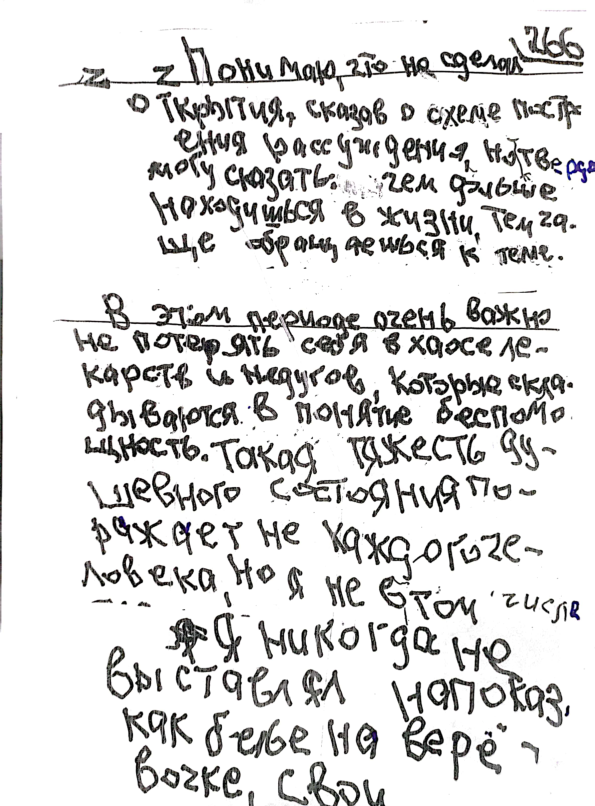 266
Понимаю, что не сделал
открытия, сказав о схеме постро
ения рассуждения, но тверда
могу сказать: чем дальше
находишься в жизни, тем ча-
ще обращаешься к теме.
В этом периоде очень важно
не потерять себя в хаосе ле-
карств и недугов, которые скла-
дываются в понятие беспомо
щность. Такая тяжесть ду-
шевного состояния по-
ражает не каждого че-
ловека, но я не в том числе
Я никогда не
выставлял напоказ,
как белье на верё-
вочке, свои